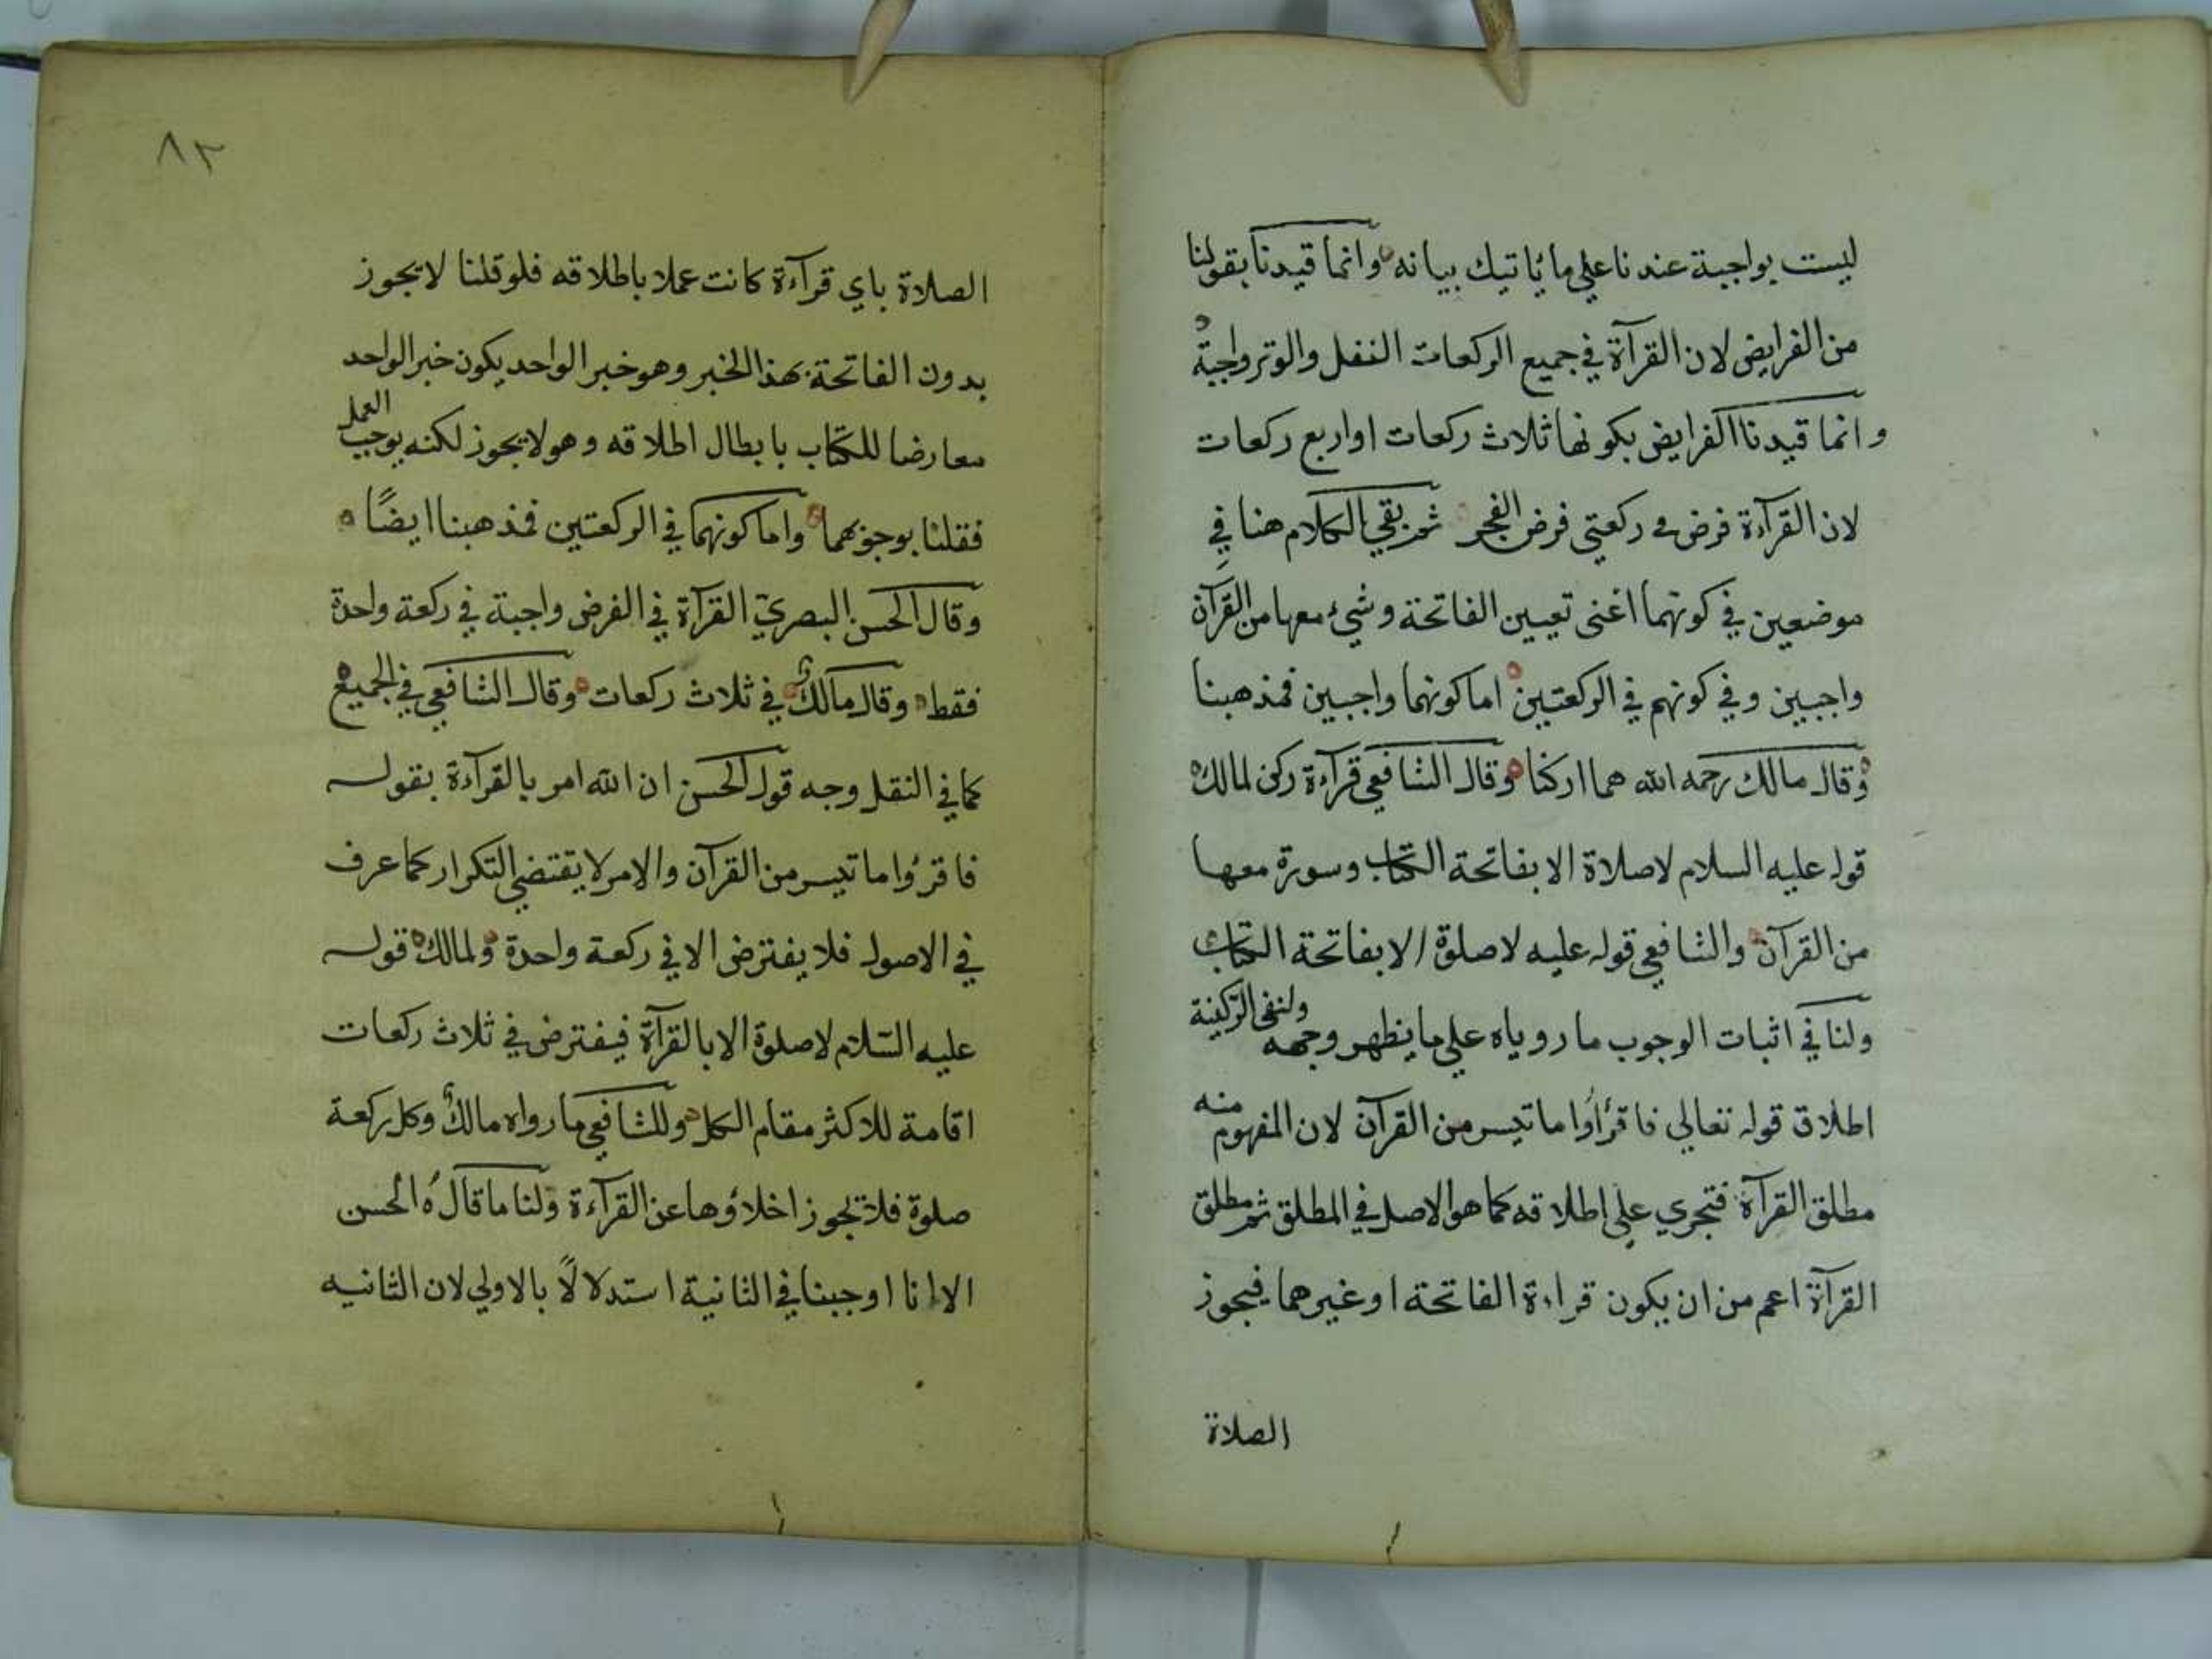 ليست بواجبة عندنا علي ما يأتيك بيانه وانما قيدنا بقولنا
من الفرايض لان القرآة في جميع الركعات النفل والوتر واجبة
وانما قيدنا الفرايض بكونها ثلاث ركعات او اربع ركعات
لان القرآءة فرض في ركعتي فرض الفجر ثم بقي الكلام هنا في
موضعين في كونهما اعنى تعيين الفاتحة وشيء معها من القرآن
واجبين وفي كونهم في الركعتين اما كونهما واجبين فمذهبنا
وقال مالك رحمه الله هما اركنا وقال الشافعي قرآءة ركن لمالك
قوله عليه السلام لا صلاة الا بفاتحة الكتاب وسورة معها
من القرآن والشافعي قوله عليه لا صلوة الا بفاتحة الكتاب
ولنا في اثبات الوجوب ما روياه علي ما يظهر وجهه ولنفي الركنية
اطلاق قوله تعالي فاقرأوا ما تيسر من القرآن لان المفهوم منه
مطلق القرآة فتجري علي اطلاقه كما هو الاصل في المطلق ثم مطلق
القرآة اعم من ان يكون قراءة الفاتحة او غيرهما فيجوز
الصلاة
٨٢
الصلاة باي قرآءة كانت عملا باطلاقه فلو قلنا لا يجوز
بدون الفاتحة بهذا الخبر وهو خبر الواحد يكون خبر الواحد
معارضا للكتاب بابطال اطلاقه وهو لا يجوز لكنه يوجب العمل
فقلنا بوجوبهما واما كونهما في الركعتين فمذهبنا ايضًا
وقال الحسن البصريّ القرآة في الفرض واجبة في ركعة واحدة
فقط وقال مالك في ثلاث ركعات وقال الشافعي في الجميع
كما في النقل وجه قول الحسن ان الله امر بالقرآءة بقوله
فاقرؤا ما تيسر من القرآن والامر لا يقتضي التكرار كما عرف
في الاصول فلا يفترض الا في ركعة واحدة ولمالك قوله
عليه السّلام لا صلوة الا بالقرآة فيفترض في ثلاث ركعات
اقامة للاكثر مقام الكل وللشافعي ما رواه مالك وكل ركعة
صلوة فلا تجوز اخلاؤها عن القرآءة ولنا ما قاله الحسن
الا انا اوجبنا في الثانية استدلالًا بالاولي لان الثانيه